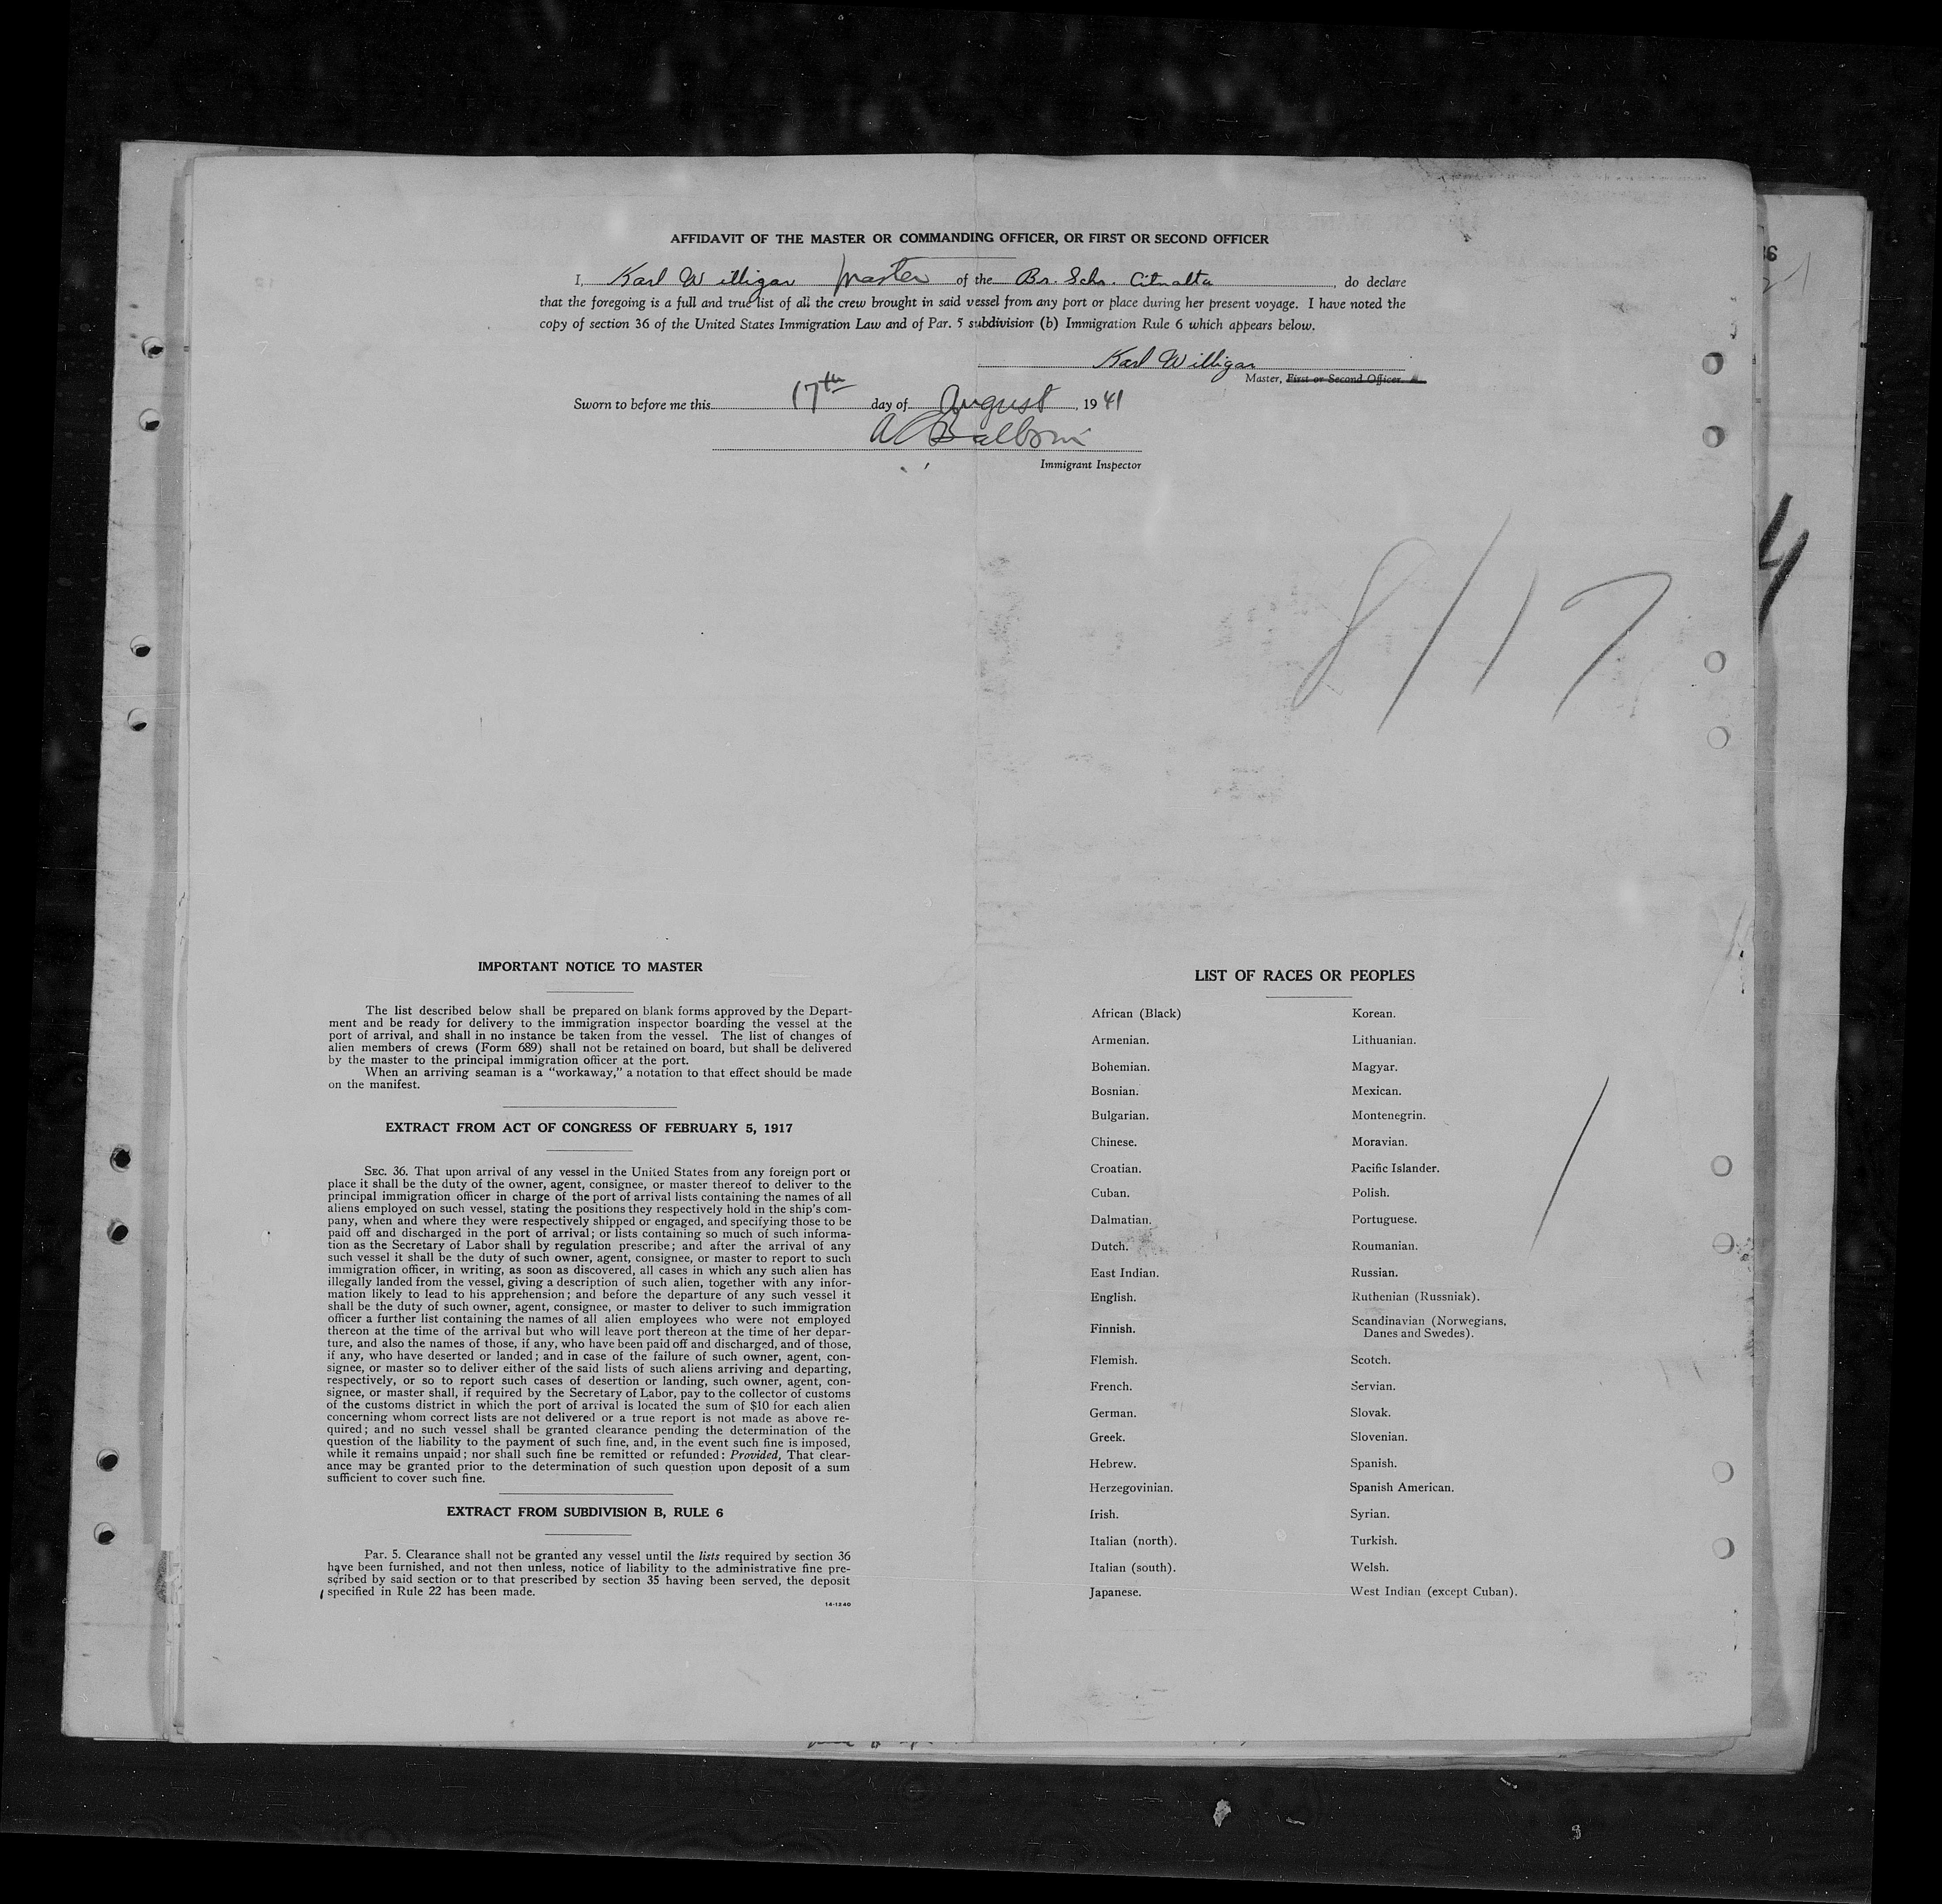 AFFIDAVIT OF THE MASTER OR COMMANDING OFFICER, OR FIRST OR SECOND OFFICER
I, Karl Willigar Master of the Br. Schr. Citnalta, do declare
that the foregoing is a full and true list of all the crew brought in said vessel from any port or place during her present voyage. I have noted the
copy of section 36 of the United States Immigration Law and of Par. 5 subdivision (b) Immigration Rule 6 which appears below.
Karl Willigar
Master, First or Second Officer.
Sworn to before me this 17th day of August, 1941
Immigrant Inspector
8/17
4
IMPORTANT NOTICE TO MASTER
The list described below shall be prepared on blank forms approved by the Depart-
ment and be ready for delivery to the immigration inspector boarding the vessel at the
port of arrival, and shall in no instance be taken from the vessel. The list of changes of
alien members of crews (Form 689) shall not be retained on board, but shall be delivered
by the master to the principal immigration officer at the port.
When an arriving seaman is a "workaway," a notation to that effect should be made
on the manifest.
EXTRACT FROM ACT OF CONGRESS OF FEBRUARY 5, 1917
SEC. 36. That upon arrival of any vessel in the United States from any foreign port or
place it shall be the duty of the owner, agent, consignee, or master thereof to deliver to the
principal immigration officer in charge of the port of arrival lists containing the names of all
aliens employed on such vessel, stating the positions they respectively hold in the ship's com-
pany, when and where they were respectively shipped or engaged, and specifying those to be
paid off and discharged in the port of arrival; or lists containing so much of such informa-
tion as the Secretary of Labor shall by regulation prescribe; and after the arrival of any
such vessel it shall be the duty of such owner, agent, consignee, or master to report to such
immigration officer, in writing, as soon as discovered, all cases in which any such alien has
illegally landed from the vessel, giving a description of such alien, together with any infor-
mation likely to lead to his apprehension; and before the departure of any such vessel it
shall be the duty of such owner, agent, consignee, or master to deliver to such immigration
officer a further list containing the names of all alien employees who were not employed
thereon at the time of the arrival but who will leave port thereon at the time of her depar-
ture, and also the names of those, if any, who have been paid off and discharged, and of those,
if any, who have deserted or landed; and in case of the failure of such owner, agent, con-
signee, or master so to deliver either of the said lists of such aliens arriving and departing,
respectively, or so to report such cases of desertion or landing, such owner, agent, con-
signee, or master shall, if required by the Secretary of Labor, pay to the collector of customs
of the customs district in which the port of arrival is located the sum of $10 for each alien
concerning whom correct lists are not delivered or a true report is not made as above re-
quired; and no such vessel shall be granted clearance pending the determination of the
question of the liability to the payment of such fine, and, in the event such fine is imposed,
while it remains unpaid; nor shall such fine be remitted or refunded: Provided, That clear-
ance may be granted prior to the determination of such question upon deposit of a sum
sufficient to cover such fine.
EXTRACT FROM SUBDIVISION B, RULE 6
Par. 5. Clearance shall not be granted any vessel until the lists required by section 36
have been furnished, and not then unless, notice of liability to the administrative fine pre-
scribed by said section or to that prescribed by section 35 having been served, the deposit
specified in Rule 22 has been made.
14-1240
LIST OF RACES OR PEOPLES
African (Black)
Armenian.
Bohemian.
Bosnian.
Bulgarian.
Chinese.
Croatian.
Cuban.
Dalmatian.
Dutch.
East Indian.
English.
Finnish.
Flemish.
French.
German.
Greek.
Hebrew.
Herzegovinian.
Irish.
Italian (north).
Italian (south).
Japanese.
Korean.
Lithuanian.
Magyar.
Mexican.
Montenegrin.
Moravian.
Pacific Islander.
Polish.
Portuguese.
Roumanian.
Russian.
Ruthenian (Russniak).
Scandinavian (Norwegians,
Danes and Swedes).
Scotch.
Servian.
Slovak.
Slovenian.
Spanish.
Spanish American.
Syrian.
Turkish.
Welsh.
West Indian (except Cuban).